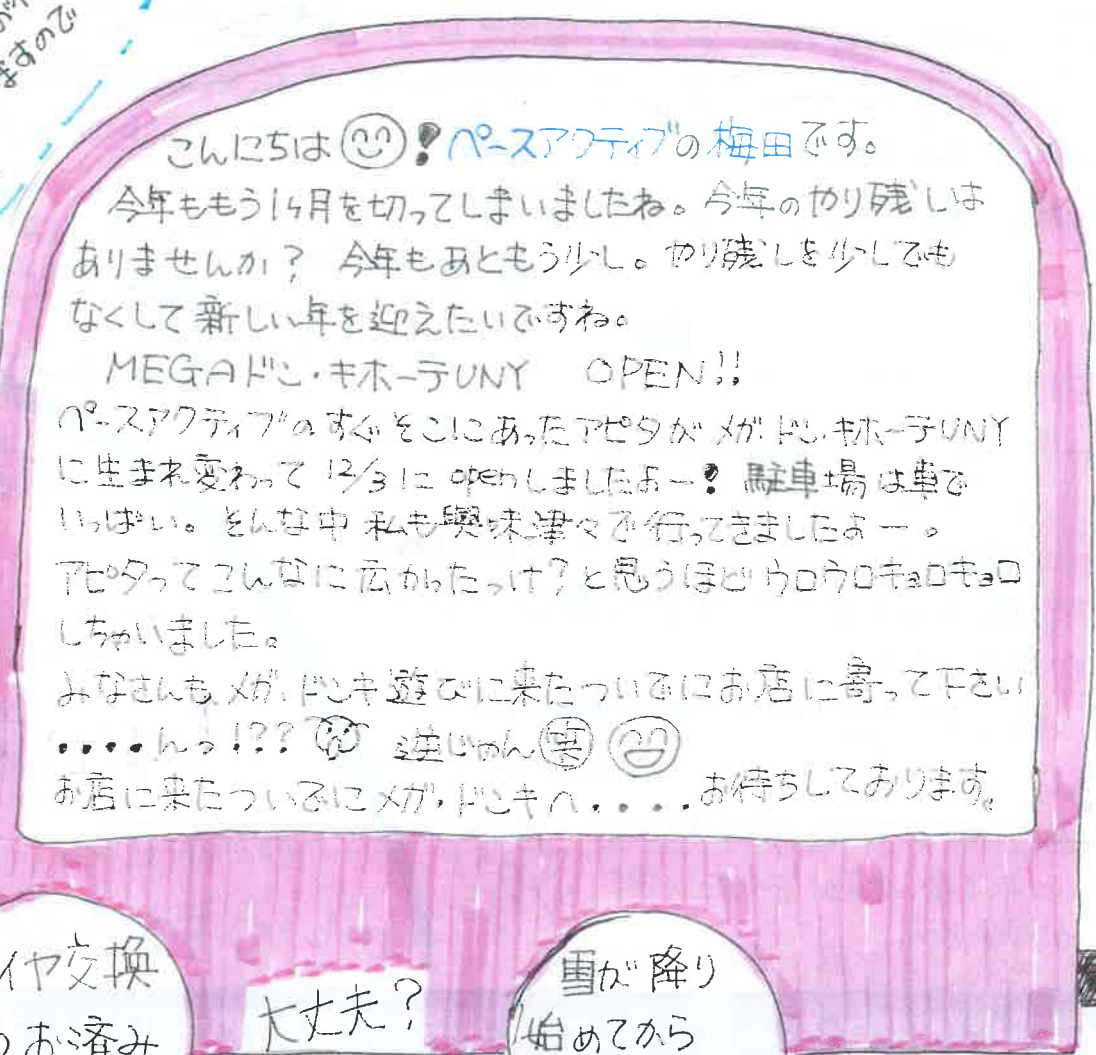 ますので
こんにちは😊!ペースアクティブの梅田です。
今年ももう1ヶ月を切ってしまいましたね。今年のやり残しは
ありませんか? 今年もあともう少し。やり残しを少しでも
なくして新しい年を迎えたいですね。
MEGAドン・キホーテUNY OPEN!!
ペースアクティブのすぐそこにあったアピタがメガ・ドン・キホーテUNY
に生まれ変わって12/3にopenしましたよー! 駐車場は車で
いっぱい。そんな中私も興味津々で行ってきましたよー。
アピタってこんなに広かったっけ?と思うほどウロウロキョロキョロ
しちゃいました。
みなさんも、メガ・ドンキ遊びに来たついでにお店に寄って下さい
・・・・んっ!?? 逆じゃん(笑)
お店に来たついでにメガ・ドンキへ・・・・お待ちしております。
イヤ交換
お済み
大丈夫?
雪が降り
始めてから